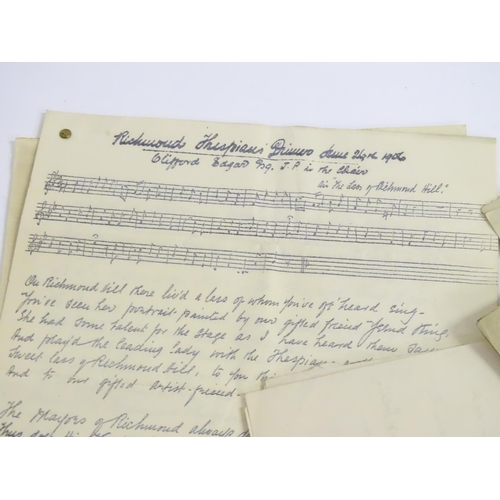 Richmond Thespians Dinner June 29th 1906
Clifford Edgar Esq. J.P in the Chair
air "The Lass of Richmond Hill."
On Richmond Hill there liv'd a lass of whom you've oft heard sing—
You've seen her portrait painted by our gifted friend
She had some talent for the stage as I have heard them
And play'd the leading lady with the Thespians
Sweet lass of Richmond Hill, to you
And to our gifted artist-friend—
The Mayors of Richmond always
Thus does